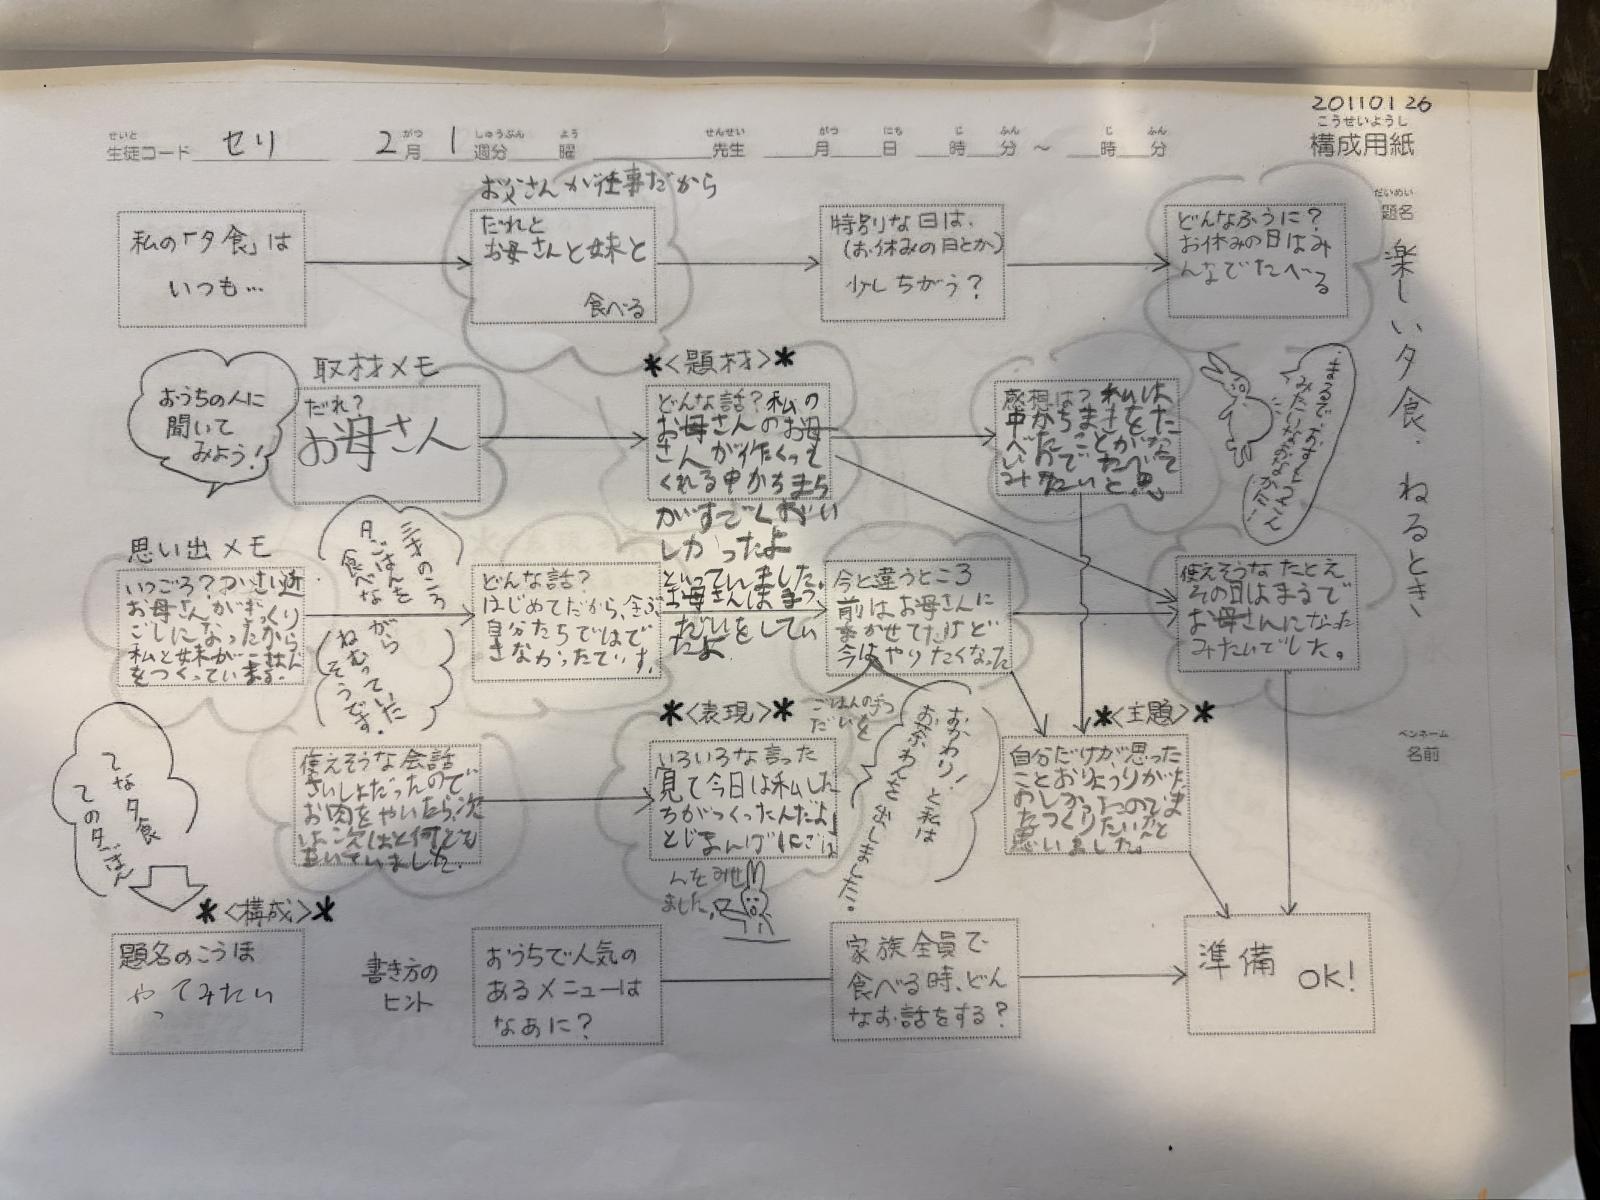 20110126
こうせいようし
構成用紙
せいと
生徒コード セリ 2月 1週分 曜 先生 月 日 時 分 ～ 時 分
がつ しゅうぶん よう せんせい がつ にち じ ふん じ ふん
だいめい
題名
楽しい夕食、ねるとき、
ペンネーム
名前
私の「夕食」は
いつも…
お父さんが仕事だから
だれと
お母さんと妹と
食べる
特別な日は、
(お休みの日とか)
少しちがう?
どんなふうに?
お休みの日はみ
んなでたべる
おうちの人に
聞いて
みよう!
取材メモ
だれ?
お母さん
*<題材>*
どんな話?私の
お母さんのお母
さんが作くって
くれる中かちまち
がすごくおい
しかったよ
といっていました。
感想は?私は
まるで、おすもうさん
みたいなおなかだ!
思い出メモ
いつごろ?つい さい近
お母さんがぎっくり
ごしになったから
私と妹がごはん
をつくっています。
三才のころ
月ごはんを
食べな
がら
ねむっていた
そうです。
どんな話?
はじめてだから、全ぶ
自分たちではで
きなかったです。
今と違うところ
前はお母さんに
まかせてたけど
今はやりたくなった
ごはんの手つ
だいと
使えそうなたとえ
その日はまるで
お母さんになった
みたいでした。
てな夕食
ての夕ごはん
使えそうな会話
さいしょだったので
お肉をやいたら、次
は、次はと何ども
きいていました。
*<表現>*
いろいろな言った
見て今日は私した
ちがつくったんだよ!
とじまんげにごは
んをみせ
ました。
おかわり!と私は
おちゃわんを出しました。
*<主題>*
自分だけが思った
ことおりょうりがた
のしかったのでま
たつくりたいなと
思いました。
*<構成>*
題名のこうほ
やってみたい
書き方の
ヒント
おうちで人気の
あるメニューは
なあに?
家族全員で
食べる時、どん
なお話をする?
準備 OK!